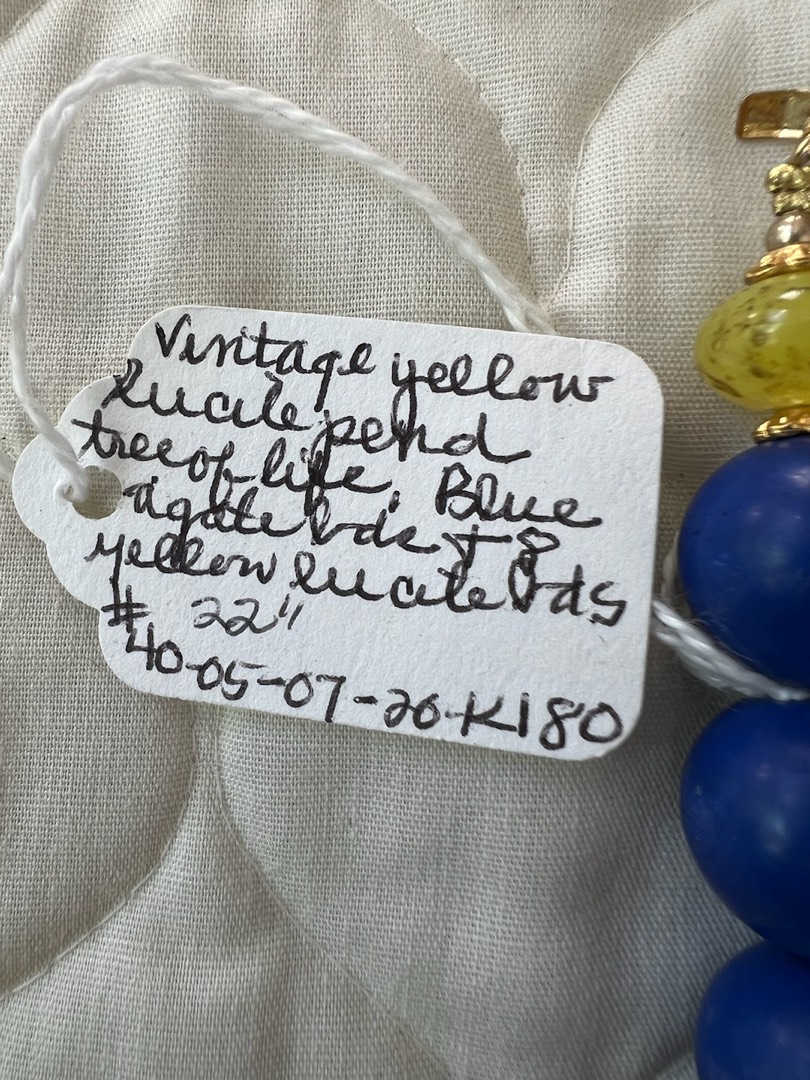 Vintage yellow
lucite pend
tree of life. Blue
agate bds + 8
yellow lucite bds
# 22"
40-05-07-20-K180